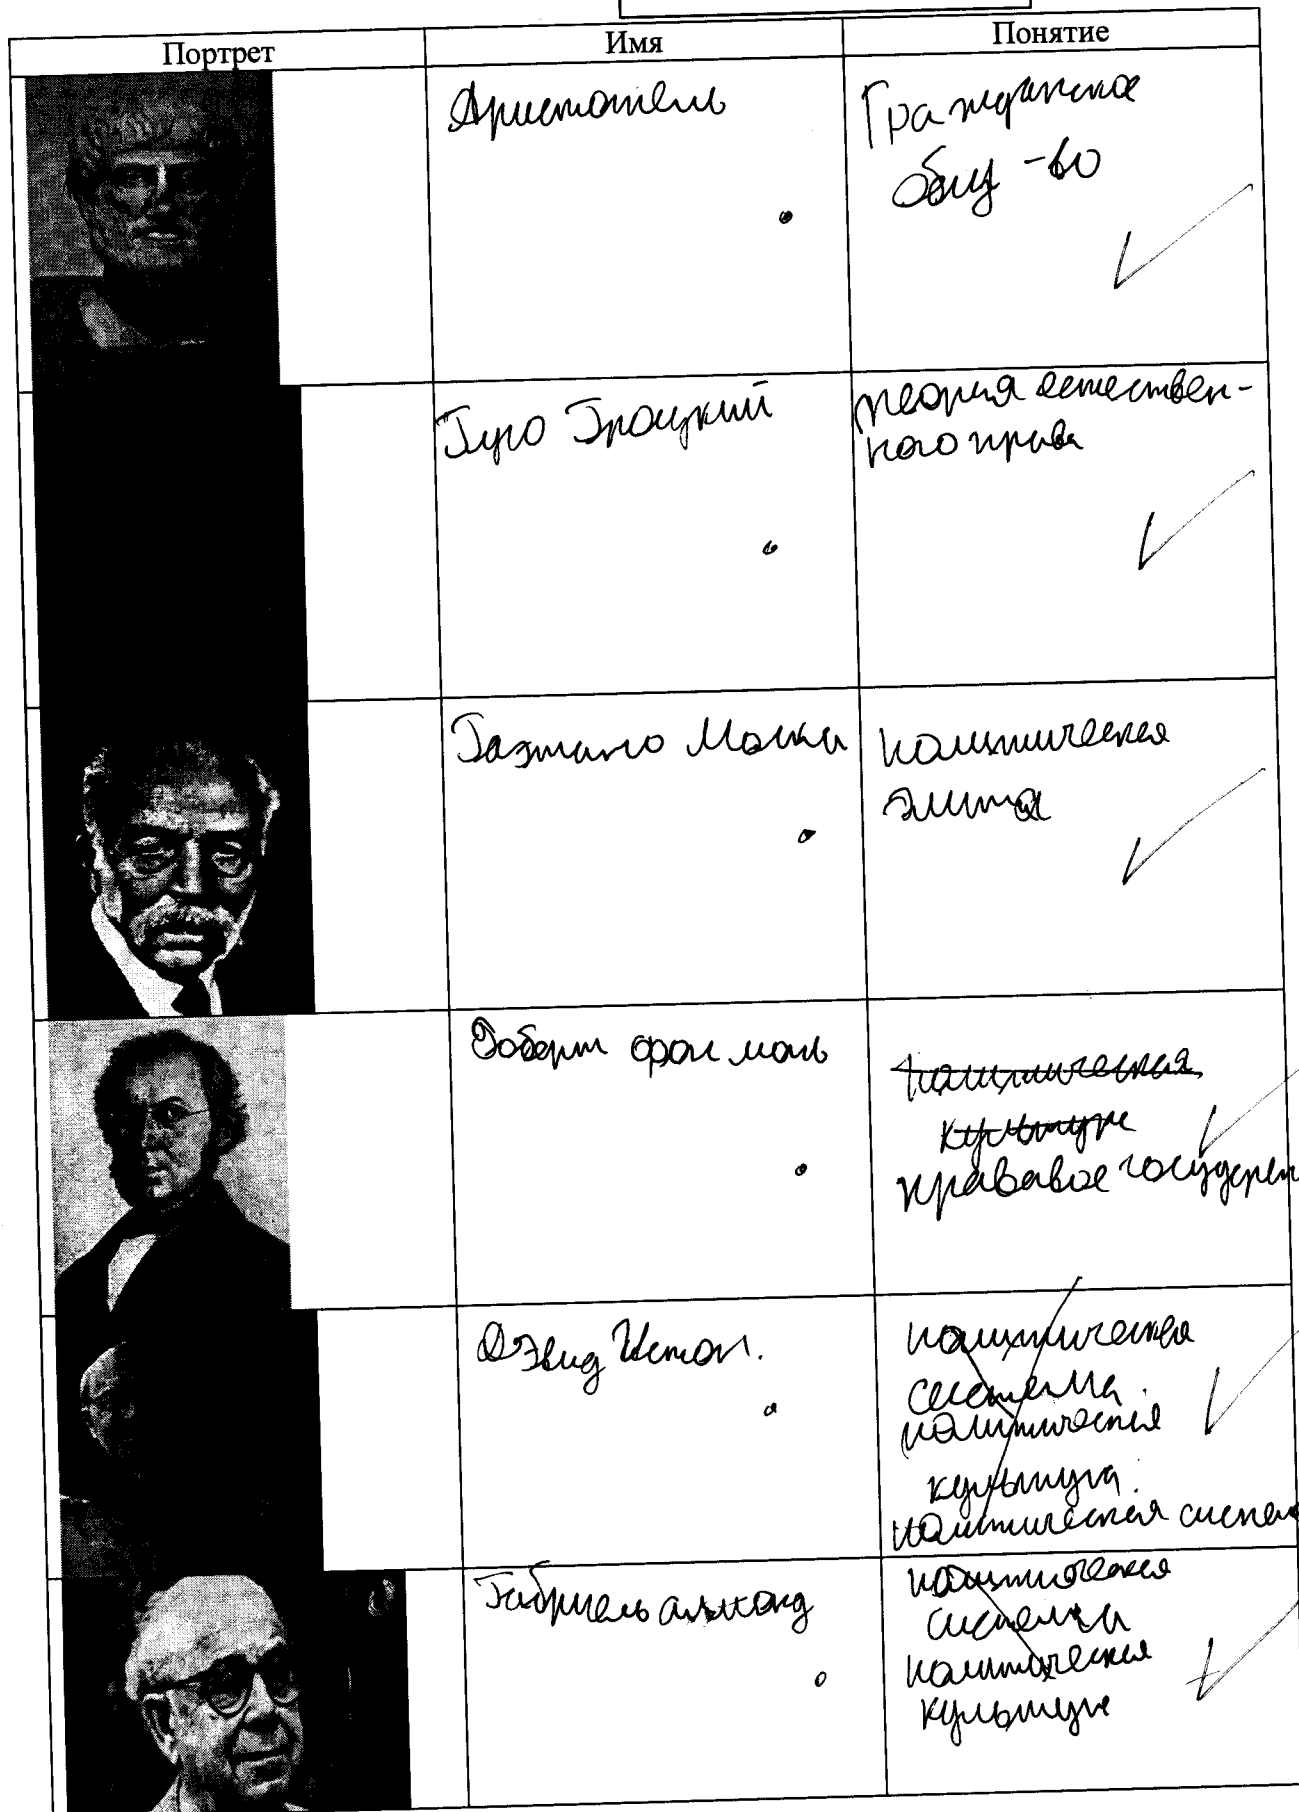 Портрет Имя Понятие
Аристотель
Гражданское
общ-во
Гуго Гроцкий
теория естествен-
ного права
Гаэтано Моска
политическая
элита
Роберт фон моль
политическая
культура
правовое государст
Дэвид Истон.
политическая
система.
политическая
культура.
политическая систем
Габриель алмонд
политическая
система
политическая
культура